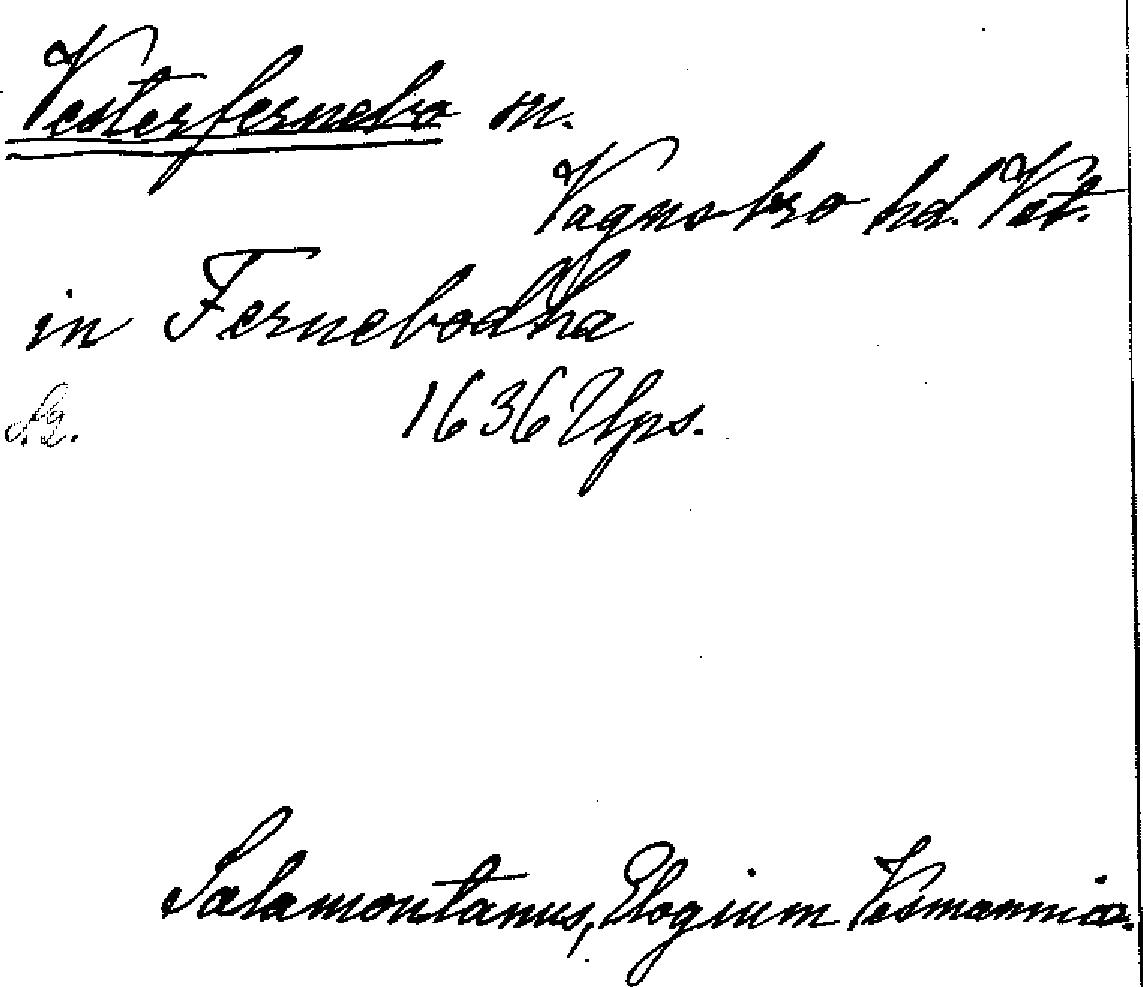 Vesterfernebo sn.
Vagnsbro hd. Vst.
in Fernebodha
1636 Ups.
Salamontanus, Elogium Vesmanniæ.